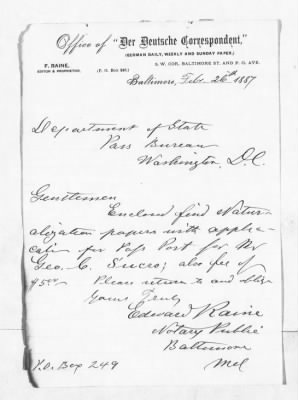 Office of "Der Deutsche Correspondent,"
(GERMAN DAILY, WEEKLY AND SUNDAY PAPER.)
F. RAINE,
EDITOR & PROPRIETOR.
(P. O. Box 249.)
S. W. COR. BALTIMORE ST. AND P. O. AVE.
Baltimore, Feb. 26th 1887
Department of State
Pass Bureau
Washington, D.C.
Gentlemen
Enclosed find Natur-
alization papers with appli-
cati for Pass Port for Mr
Geo. C. Sucro; also fee of
$5.00 Please return to and oblige
Yours Truly
Edward Raine
Notary Public
Baltimore
Md
P.O. Box 249